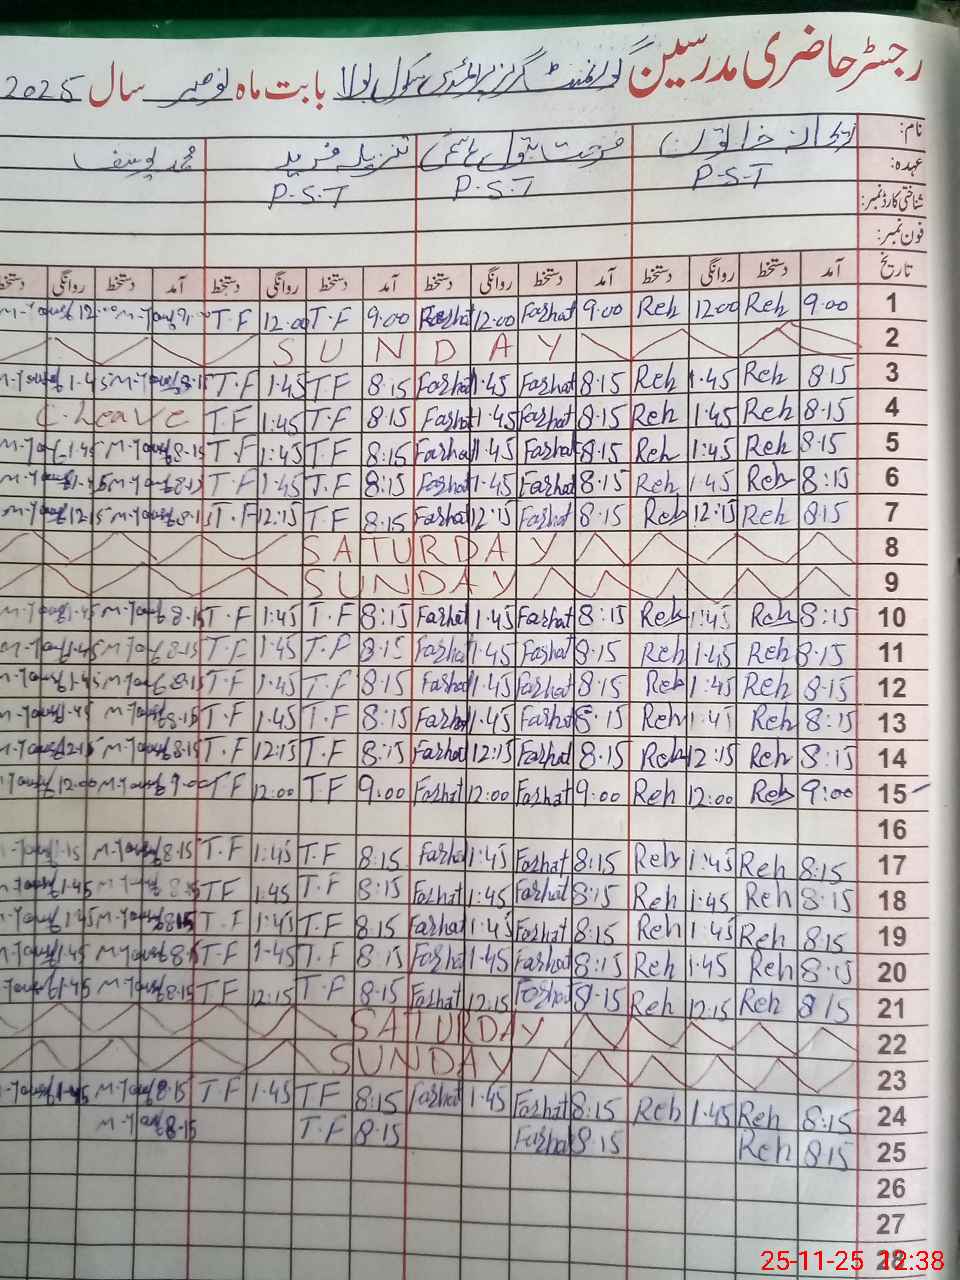 رجسٹر حاضری مدرسین گورنمنٹ گرلز پرائمری سکول بولا بابت ماہ نومبر سال 2025
نام: ریحانہ خاتون فرحت بتول ہاشمی تنزیلہ فرید محمد یوسف
عہدہ: P.S.T P.S.T P.S.T
شناختی کارڈ نمبر:
فون نمبر:
تاریخ آمد دستخط روانگی دستخط آمد دستخط روانگی دستخط آمد دستخط روانگی دستخط آمد دستخط روانگی دستخط
1 9:00 Reh 12:00 Reh 9.00 Farhat 12:00 Farhat 9:00 T.F 12:00 T.F 9:00 M-Yousaf 12:00 M-Yousaf
2 SUNDAY
3 8:15 Reh 1.45 Reh 8:15 Farhat 1.45 Farhat 8:15 T.F 1.45 T.F 8:15 M-Yousaf 1.45 M-Yousaf
4 8:15 Reh 1.45 Reh 8:15 Farhat 1.45 Farhat 8:15 T.F 1:45 T.F C-Leave
5 8:15 Reh 1:45 Reh 8:15 Farhat 1.45 Farhat 8:15 T.F 1:45 T.F 8-15 M-Yousaf 1.45 M-Yousaf
6 8:15 Reh 1.45 Reh 8:15 Farhat 1.45 Farhat 8:15 T.F 1.45 T.F 8:15 M-Yousaf 1-45 M-Yousaf
7 8:15 Reh 12:15 Reh 8:15 Farhat 12:15 Farhat 8:15 T.F 12:15 T.F 8-15 M-Yousaf 12-15 M-Yousaf
8 SATURDAY
9 SUNDAY
10 8:15 Reh 1:45 Reh 8:15 Farhat 1.45 Farhat 8:15 T.F 1:45 T.F 8.15 M-Yousaf 1.45 M-Yousaf
11 8:15 Reh 1.45 Reh 8:15 Farhat 1.45 Farhat 8.15 T.F 1.45 T.F 8.15 M-Yousaf 1.45 M-Yousaf
12 8.15 Reh 1:45 Reh 8:15 Farhat 1.45 Farhat 8:15 T.F 1.45 T.F 8.15 M-Yousaf 1.45 M-Yousaf
13 8:15 Reh 1:45 Reh 8:15 Farhat 1.45 Farhat 8:15 T.F 1.45 T.F 8.15 M-Yousaf 1.45 M-Yousaf
14 8:15 Reh 12:15 Reh 8.15 Farhat 12:15 Farhat 8:15 T.F 12:15 T.F 8.15 M-Yousaf 12-15 M-Yousaf
15 9:00 Reh 12:00 Reh 9:00 Farhat 12:00 Farhat 9:00 T.F 12:00 T.F 9-00 M-Yousaf 12.00 M-Yousaf
16
17 8:15 Reh 1:45 Reh 8:15 Farhat 1:45 Farhat 8:15 T.F 1:45 T.F 8.15 M-Yousaf M-Yousaf
18 8:15 Reh 1:45 Reh 8:15 Farhat 1.45 Farhat 8:15 T.F 1.45 TF 8.15 M-Yousaf 1.45 M-Yousaf
19 8:15 Reh 1:45 Reh 8:15 Farhat 1:45 Farhat 8:15 T.F 1:45 T.F 8:15 M-Yousaf 1.45 M-Yousaf
20 8:15 Reh 1.45 Reh 8:15 Farhat 1.45 Farhat 8:15 T.F 1.45 T.F 8.15 M-Yousaf 1.45 M-Yousaf
21 8:15 Reh 12:15 Reh 8.15 Farhat 12:15 Farhat 8.15 T.F 12:15 TF 8.15 M-Yousaf 1.45 M-Yousaf
22 SATURDAY
23 SUNDAY
24 8:15 Reh 1.45 Reh 8:15 Farhat 1.45 Farhat 8:15 TF 1.45 T.F 8.15 M-Yousaf 1.45 M-Yousaf
25 8:15 Reh 8:15 Farhat 8:15 T.F 8-15 M-Yousaf
26
27
28
25-11-25 12:38